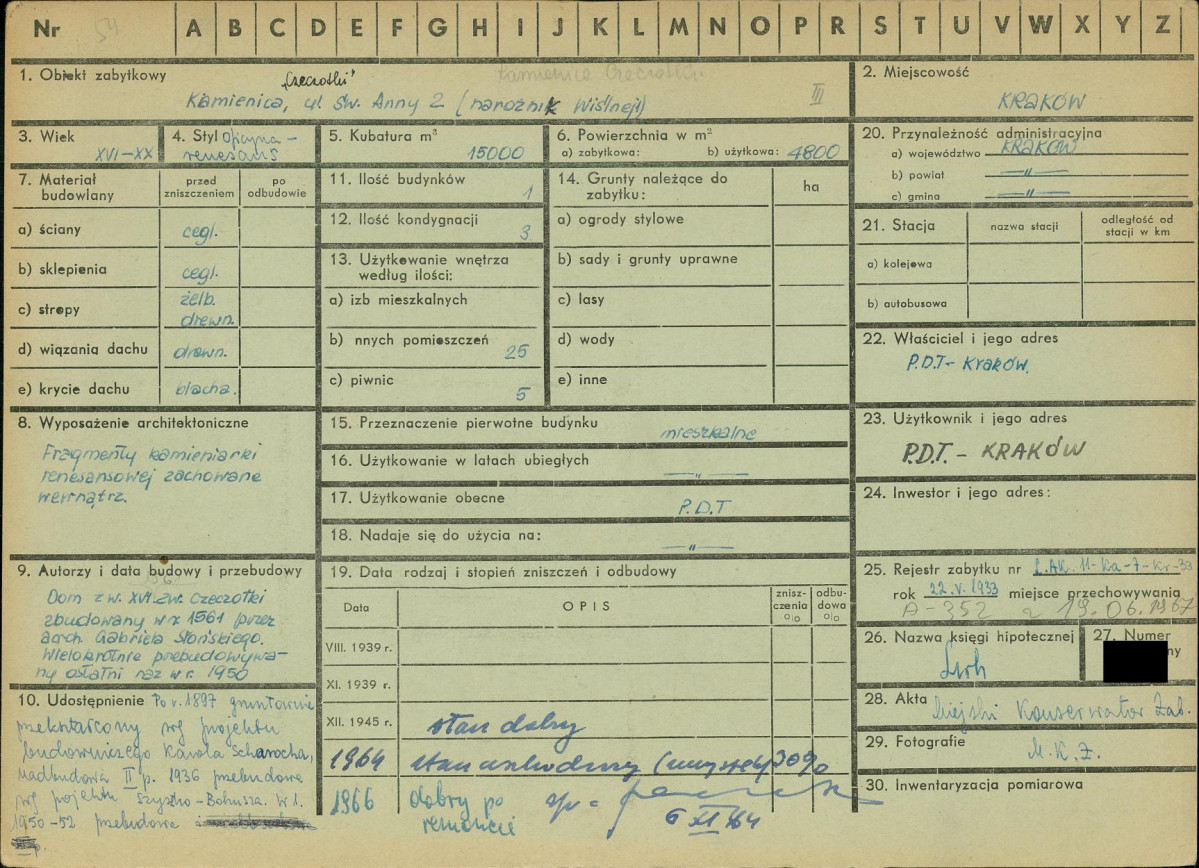 Nr 54 A B C D E F G H I J K L M N O P R S T U V W X Y Z
1. Obiekt zabytkowy
„Czeczotki" Kamienica Czeczotki
Kamienica, ul. Św. Anny 2 (narożnik Wiślnej) III
2. Miejscowość
KRAKÓW
3. Wiek
XVI-XX
4. Styl Oficyna -
renesans
5. Kubatura m³
15000
6. Powierzchnia w m²
a) zabytkowa: b) użytkowa: 4800
20. Przynależność administracyjna
a) województwo KRAKÓW
b) powiat -„-
c) gmina -„-
7. Materiał budowlany
przed zniszczeniem
po odbudowie
a) ściany cegl.
b) sklepienia cegl.
c) stropy żelb.
drewn.
d) wiązania dachu drewn.
e) krycie dachu blacha.
11. Ilość budynków
1
12. Ilość kondygnacji
3
13. Użytkowanie wnętrza
według ilości:
a) izb mieszkalnych
b) nnych pomieszczeń
25
c) piwnic
5
14. Grunty należące do
zabytku:
ha
a) ogrody stylowe
b) sady i grunty uprawne
c) lasy
d) wody
e) inne
21. Stacja
nazwa stacji
odległość od
stacji w km
a) kolejowa
b) autobusowa
22. Właściciel i jego adres
P.D.T- Kraków.
8. Wyposażenie architektoniczne
Fragmenty kamieniarki
renesansowej zachowane
wewnątrz.
15. Przeznaczenie pierwotne budynku
mieszkalne
16. Użytkowanie w latach ubiegłych
-„-
17. Użytkowanie obecne
P.D.T
18. Nadaje się do użycia na:
-„-
23. Użytkownik i jego adres
P.D.T. - KRAKÓW
24. Inwestor i jego adres:
9. Autorzy i data budowy i przebudowy
Dom z w. XVI. zw. Czeczotki
zbudowany w r 1561 przez
arch Gabriela Słońskiego.
Wielokrotnie przebudowywa-
ny ostatni raz w r. 1950
19. Data rodzaj i stopień zniszczeń i odbudowy
Data
OPIS
znisz-
czenia
%
odbu-
dowa
%
VIII. 1939 r.
XI. 1939 r.
XII. 1945 r. stan dobry
1964 30%
1966 dobry po
remoncie
6 XI 64
25. Rejestr zabytku nr L.AK. 11-Ka-7-Kr-33
rok 22.V.1933 miejsce przechowywania
A-352 z 19.06.1967
26. Nazwa księgi hipotecznej
27. Numer
28. Akta Miejski Konserwator Zab.
29. Fotografie
M.K.Z.
30. Inwentaryzacja pomiarowa
10. Udostępnienie Po r. 1897 gruntownie
przekształcony wg projektu
budowniczego Karola Scharocha,
nadbudowa II p. 1936 przebudowa
wg projektu Szyszko-Bohusza. W l.
1950-52 przebudowa